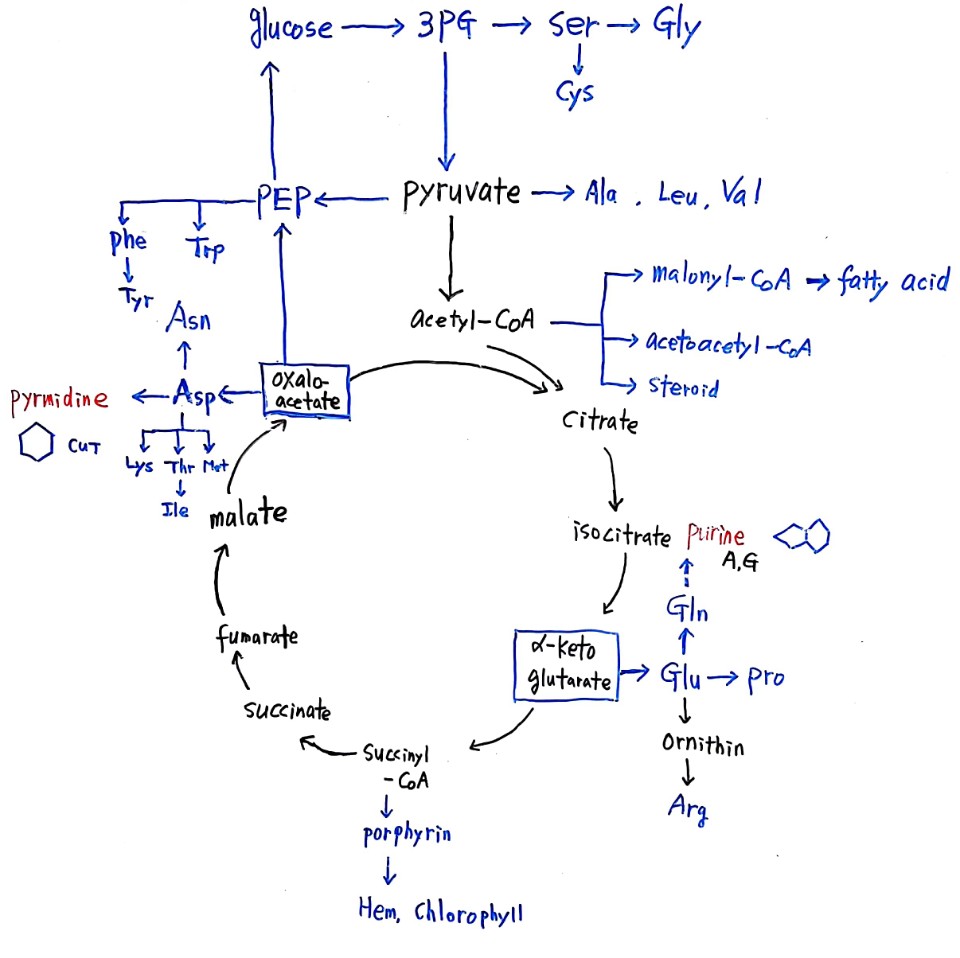 glucose → 3PG → Ser → Gly
Cys
PEP ← pyruvate → Ala , Leu, Val
phe Trp
Tyr
malonyl-CoA → fatty acid
acetyl-CoA
acetoacetyl-CoA
steroid
Asn
pyrmidine ← Asp
CUT
oxalo-
acetate
Lys Thr Met
Ile
citrate
malate
isocitrate
purine
A,G
Gln
fumarate
α-keto
glutarate
Glu → pro
succinate
Succinyl
-CoA
Ornithin
Arg
porphyrin
Hem, Chlorophyll